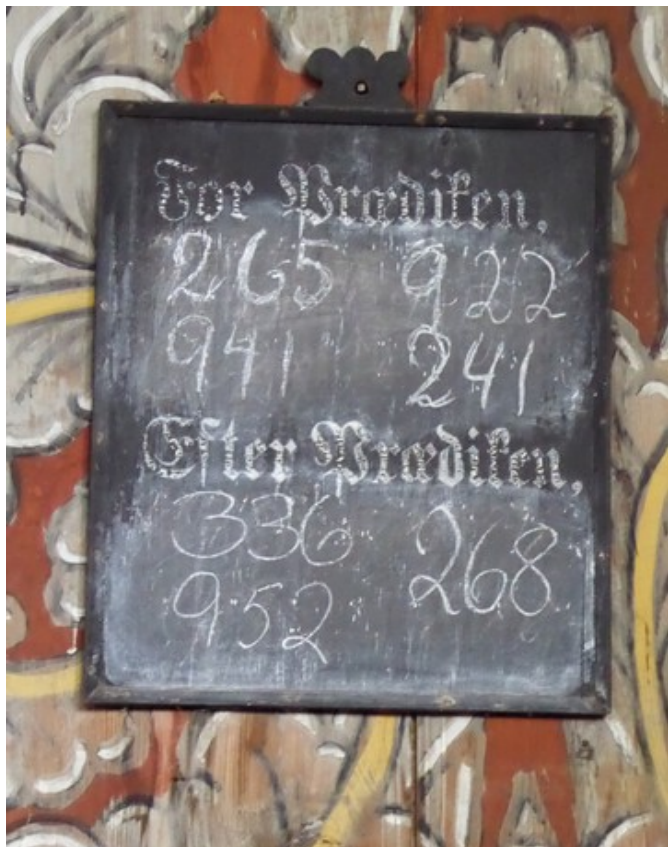 For Prædiken,
265 922
941 241
Efter Prædiken,
336 268
952